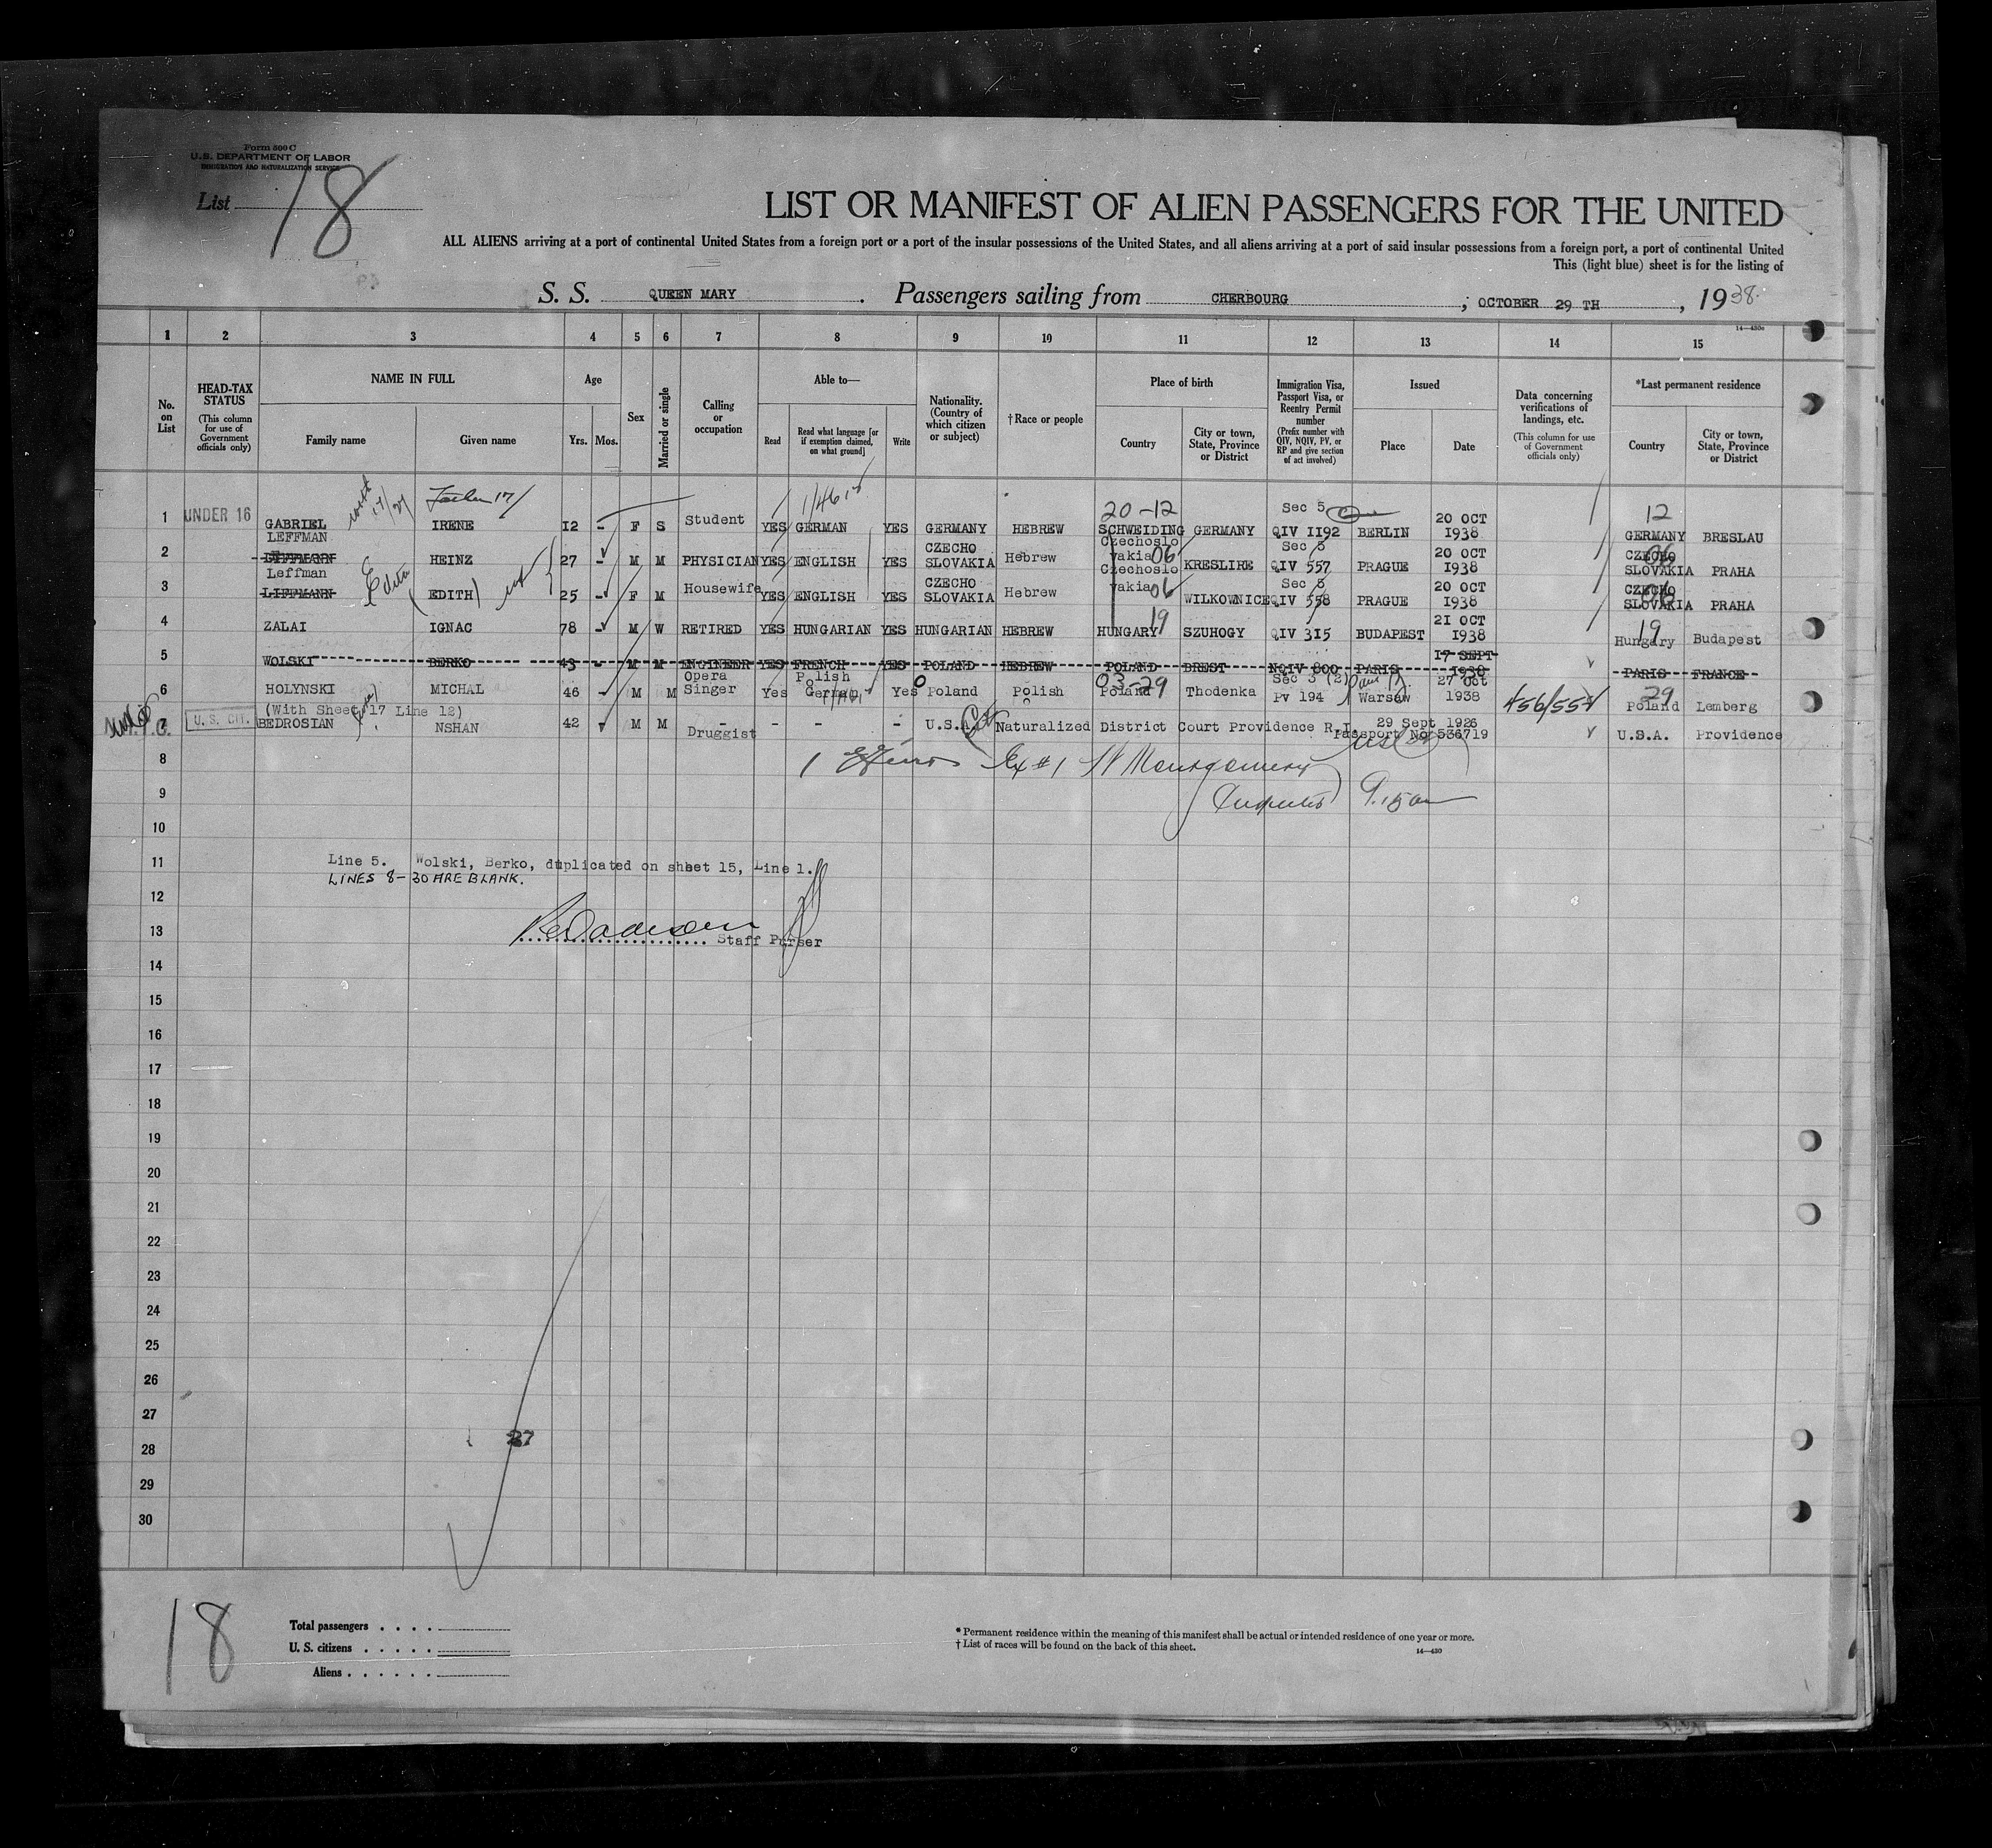 Form 500 C
U.S. DEPARTMENT OF LABOR
IMMIGRATION AND NATURALIZATION SERVICE
List 18
LIST OR MANIFEST OF ALIEN PASSENGERS FOR THE UNITED
ALL ALIENS arriving at a port of continental United States from a foreign port or a port of the insular possessions of the United States, and all aliens arriving at a port of said insular possessions from a foreign port, a port of continental United
This (light blue) sheet is for the listing of
S. S. QUEEN MARY. Passengers sailing from CHERBOURG; OCTOBER 29 TH, 1938.
14—430c
1 2 3 4 5 6 7 8 9 10 11 12 13 14 15
No. on List
HEAD-TAX STATUS
(This column for use of Government officials only)
NAME IN FULL
Family name Given name
Age
Yrs. Mos.
Sex
Married or single
Calling or occupation
Able to—
Read Read what language [or if exemption claimed, on what ground] Write
Nationality. (Country of which citizen or subject)
†Race or people
Place of birth
Country City or town, State, Province or District
Immigration Visa, Passport Visa, or Reentry Permit number
(Prefix number with QIV, NQIV, PV, or RP and give section of act involved)
Issued
Place Date
Data concerning verifications of landings, etc.
(This column for use of Government officials only)
*Last permanent residence
Country City or town, State, Province or District
20-12 Sec 5 12
1 UNDER 16 GABRIEL IRENE 12 - F S Student YES GERMAN YES GERMANY HEBREW SCHWEIDING GERMANY QIV 1192 BERLIN 20 OCT 1938 GERMANY BRESLAU
LEFFMAN
2 LIFFMANN HEINZ 27 - M M PHYSICIAN YES ENGLISH YES CZECHO SLOVAKIA Hebrew Czechoslovakia 06 KRESLIRE Sec 5 QIV 557 PRAGUE 20 OCT 1938 CZECHO SLOVAKIA 06 PRAHA
Leffman
3 LIFFMANN Edita (EDITH) 25 - F M Housewife YES ENGLISH YES CZECHO SLOVAKIA Hebrew Czechoslovakia 06 WILKOWNICE Sec 5 QIV 558 PRAGUE 20 OCT 1938 CZECHO SLOVAKIA 06 PRAHA
4 ZALAI IGNAC 78 - M W RETIRED YES HUNGARIAN YES HUNGARIAN HEBREW HUNGARY 19 SZUHOGY QIV 315 BUDAPEST 21 OCT 1938 Hungary 19 Budapest
5 WOLSKI BERKO 43 - M M ENGINEER YES FRENCH YES POLAND HEBREW POLAND BREST NQIV 800 PARIS 17 SEPT 1938 PARIS FRANCE
6 HOLYNSKI MICHAL 46 - M M Opera Singer Yes Polish German Yes Poland Polish 03-29 Poland Thodenka Sec 3 (2) Pv 194 Warsaw 27 Oct 1938 29 Poland Lemberg
(With Sheet 17 Line 12)
7 U.S. CIT. BEDROSIAN NSHAN 42 M M Druggist - - - U.S.A. Naturalized District Court Providence R.I. 29 Sept 1926 Passport No 536719 U.S.A. Providence
8
9 9.15 am
10
11 Line 5. Wolski, Berko, duplicated on sheet 15, Line 1.
LINES 8-30 ARE BLANK.
12
13 Staff Purser
14
15
16
17
18
19
20
21
22
23
24
25
26
27
27
28
29
30
18
Total passengers
U. S. citizens
Aliens
* Permanent residence within the meaning of this manifest shall be actual or intended residence of one year or more.
† List of races will be found on the back of this sheet.
14—430